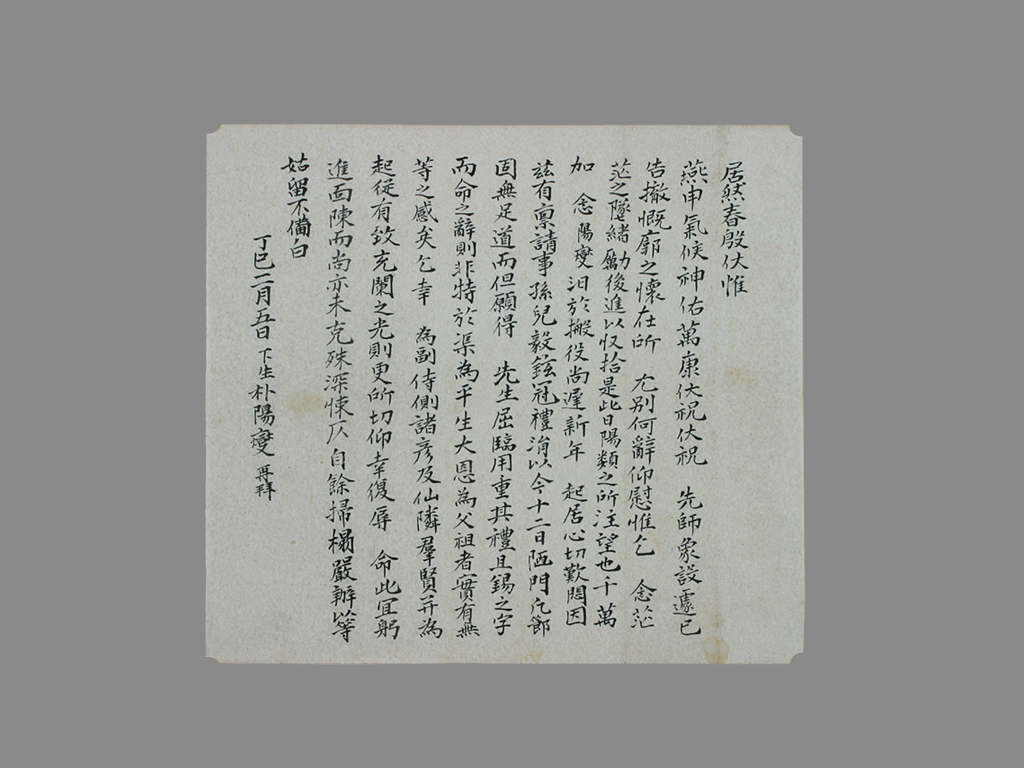 居然春殷伏惟
燕申氣候神佑萬康伏祝伏祝 先師象設遽已
告撤慨廓之懷在所 尤別何辭仰慰惟乞 念茫
茫之墜緖勵後進以收拾是此日陽類之所注望也千萬
加 念陽燮汨於搬役尚遲新年 起居心切歎悶因
玆有稟請事孫兒毅鉉冠禮涓以今十二日陋門凡節
固無足道而但願得 先生屈臨用重其禮且錫之字
而命之辭則非特於渠為平生大恩為父祖者實有無
等之感矣乞幸 為副侍側諸彦及仙隣羣賢并為
起從有致充闌之光則更所切仰幸復辱 命此宜躬
進面陳而尚亦未克殊深悚仄自餘掃榻嚴辦等
姑留不備白
丁巳二月五日 下生朴陽燮 再拜